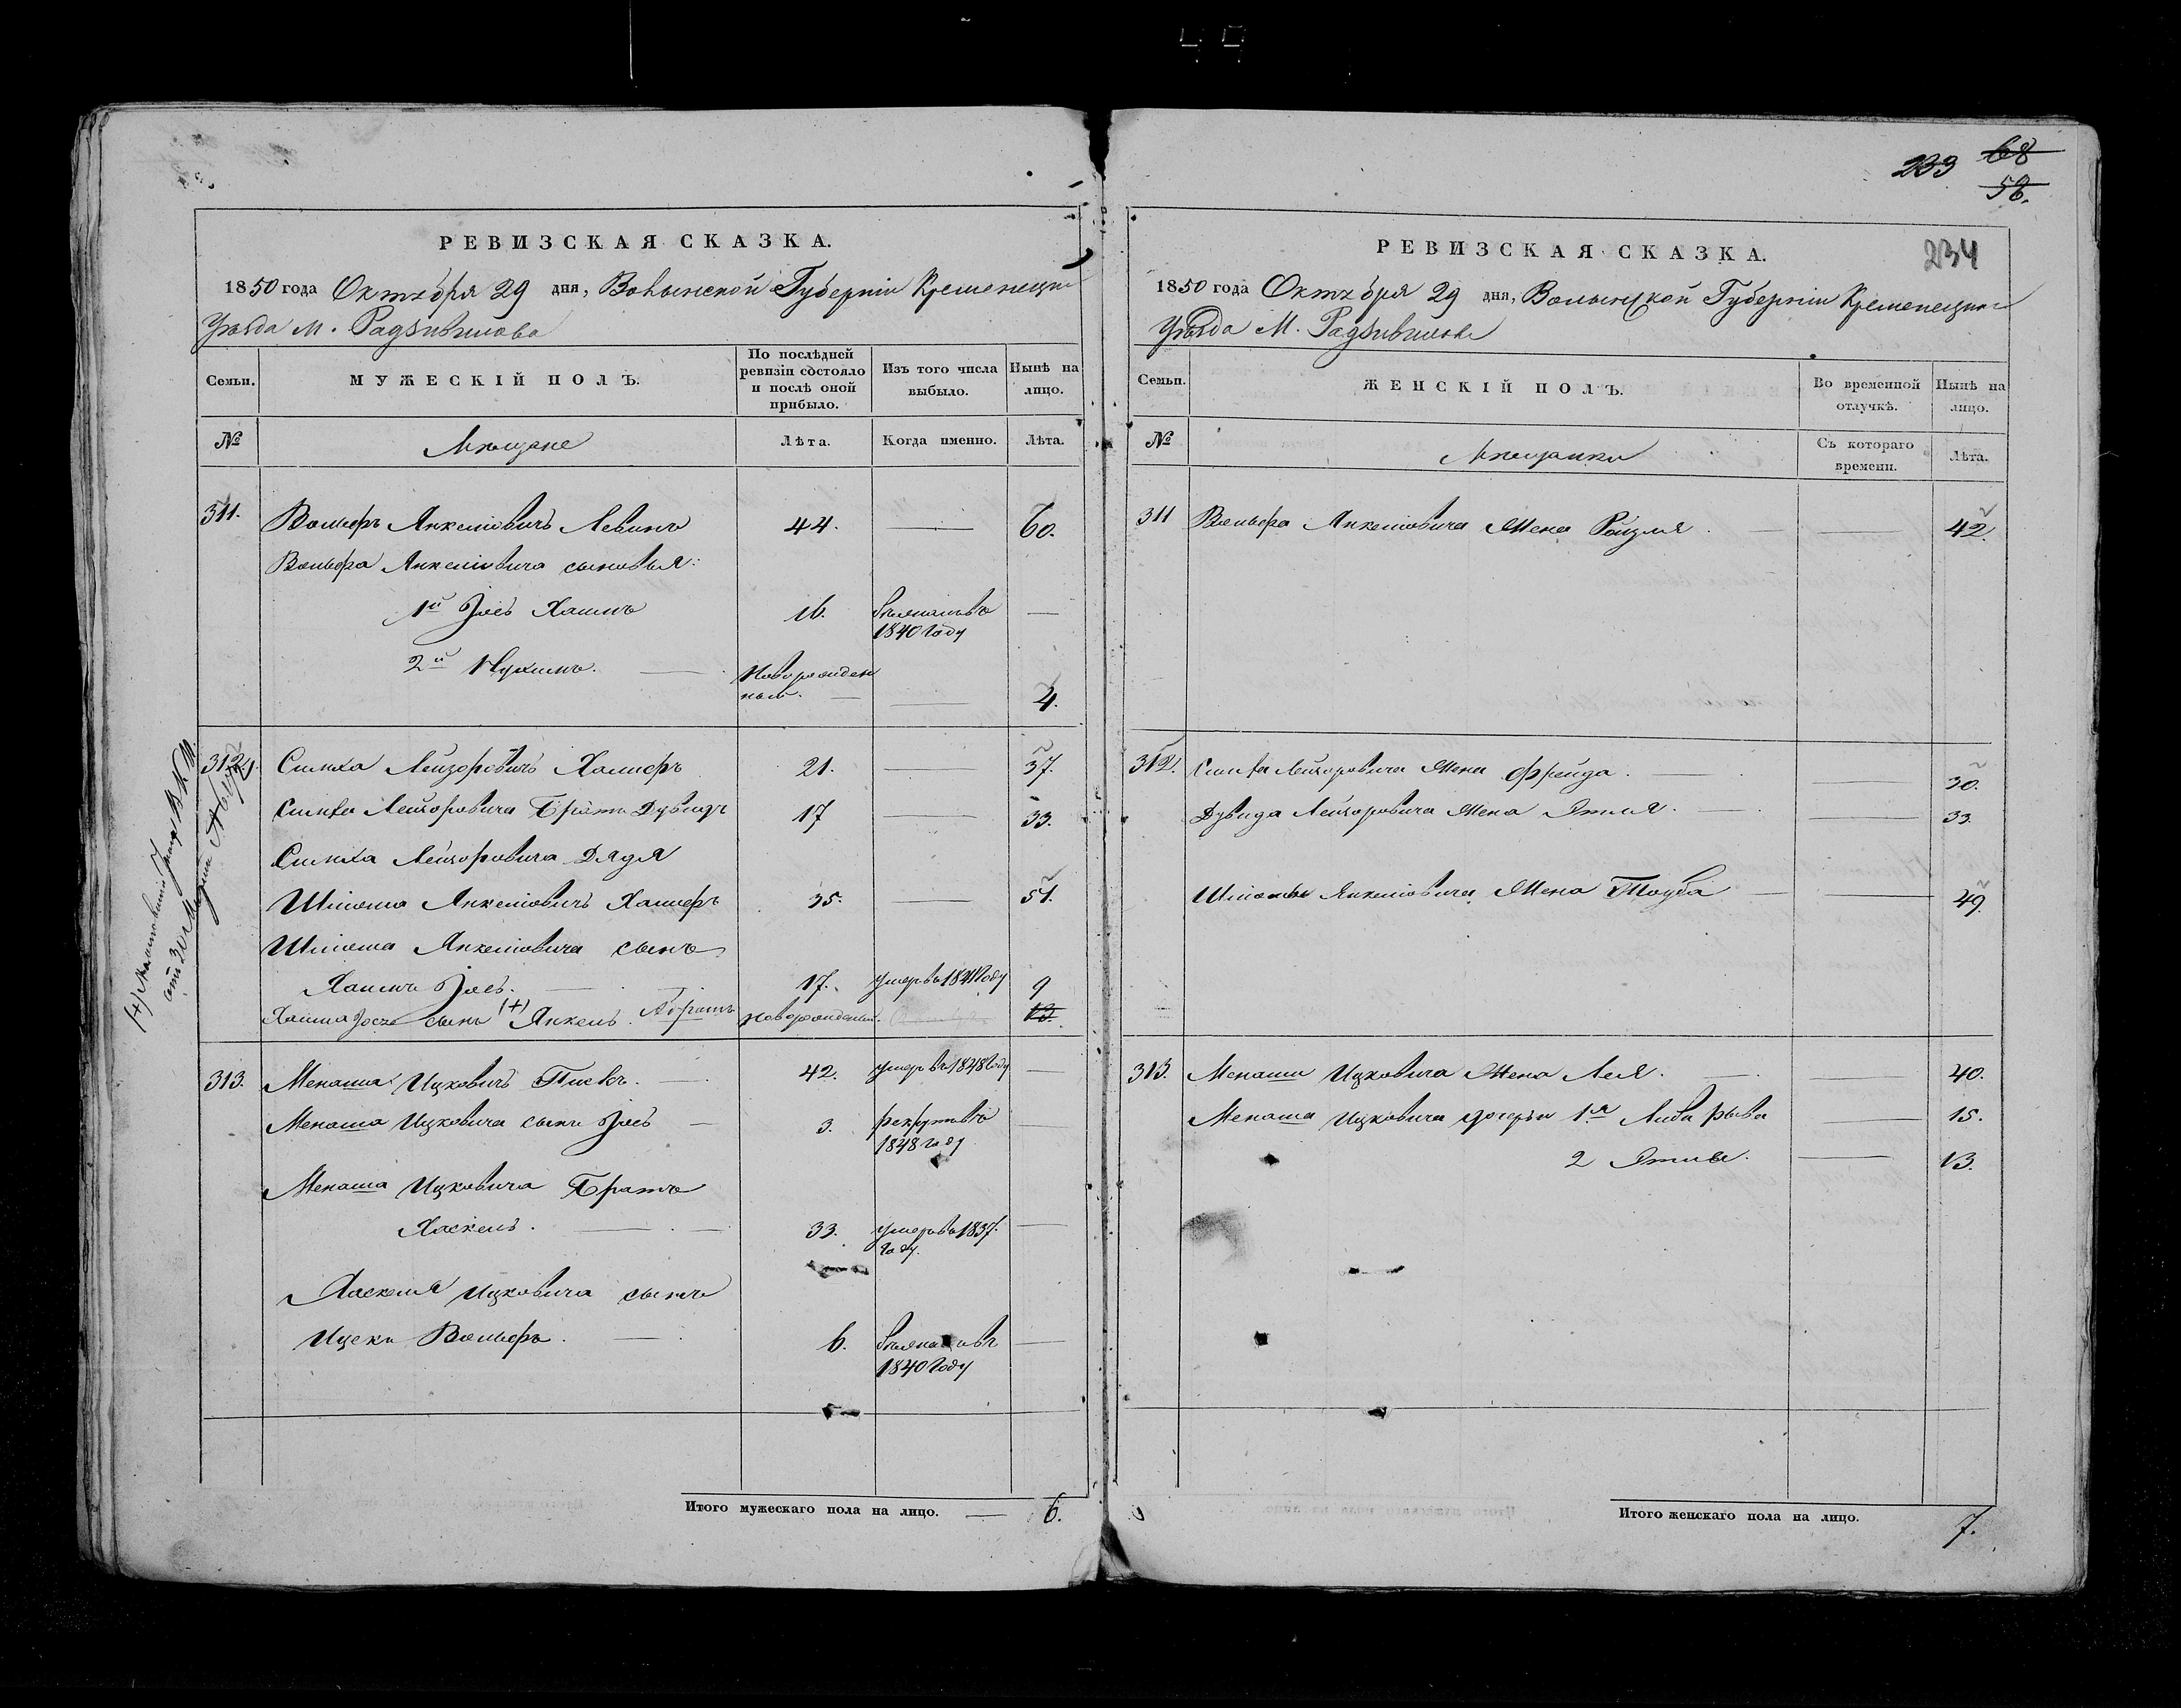 233 68
58.
РЕВИЗСКАЯ СКАЗКА.
1850 года Октября 29 дня, Волынской Губерніи Кременецкаго
Уѣзда М. Радзивилова
Семьи.
МУЖЕСКІЙ ПОЛЪ.
По послѣдней ревизіи состояло и послѣ оной прибыло.
Изъ того числа выбыло.
Нынѣ на лицо.
№
Мѣщане
Лѣта.
Когда именно.
Лѣта.
311. Вольфъ Янкелiовичъ Левинъ 44. — 60.
Вольфа Янкелiовича сыновья:
1й Iосъ Хаимъ 16. 1840 году —
2й Нухимъ. — Новорожден
ный. — — 4.
312. Симха Лейзоровичъ Халиеръ 21. — 37.
Симха Лейзоровича Братъ Дувидъ 17 — 33.
Симха Лейзоровича Дядя
Шлiома Янкелiовичъ Халиеръ 35. — 51.
Шлiома Янкелiовича сынъ
Хаимъ Iосъ. — 17. умеръ въ 1841 году 9
Хаима Iося сынъ (+) Янкель. Абрамъ новорожденый. 13.
313. Менаша Ицковичъ 42. умеръ въ 1848 году —
Менаша Ицковича сынъ Iосъ — 3. рекрутъ въ
1848 году —
Менаша Ицковича Братъ
Хаскель. — 33. умеръ въ 1837.
году. —
Хаскеля Ицковича сынъ
Ицекъ Вольфъ. — 6.
1840 году —
Итого мужескаго пола на лицо. — 6.
РЕВИЗСКАЯ СКАЗКА.
234
1850 года Октября 29 дня, Волынской Губерніи Кременецкаго
Уѣзда М. Радзивилова
Семьи.
ЖЕНСКІЙ ПОЛЪ.
Во временной отлучкѣ.
Нынѣ на лицо.
№
Мѣщанки
Съ котораго времени.
Лѣта.
311 Вольфа Янкелiовича Жена Ройзля — 42.
312. Симха Лейзоровича Жена Фрейда. — 30.
Дувида Лейзоровича Жена Этля. — 33.
Шлiомы Янкелiовича Жена Тауба — 49.
313. Менаши Ицковича Жена Лея. — 40.
Менаша Ицковича дочери 1я Либа рыва — 15.
2 Этля. — 13.
Итого женскаго пола на лицо. 7.